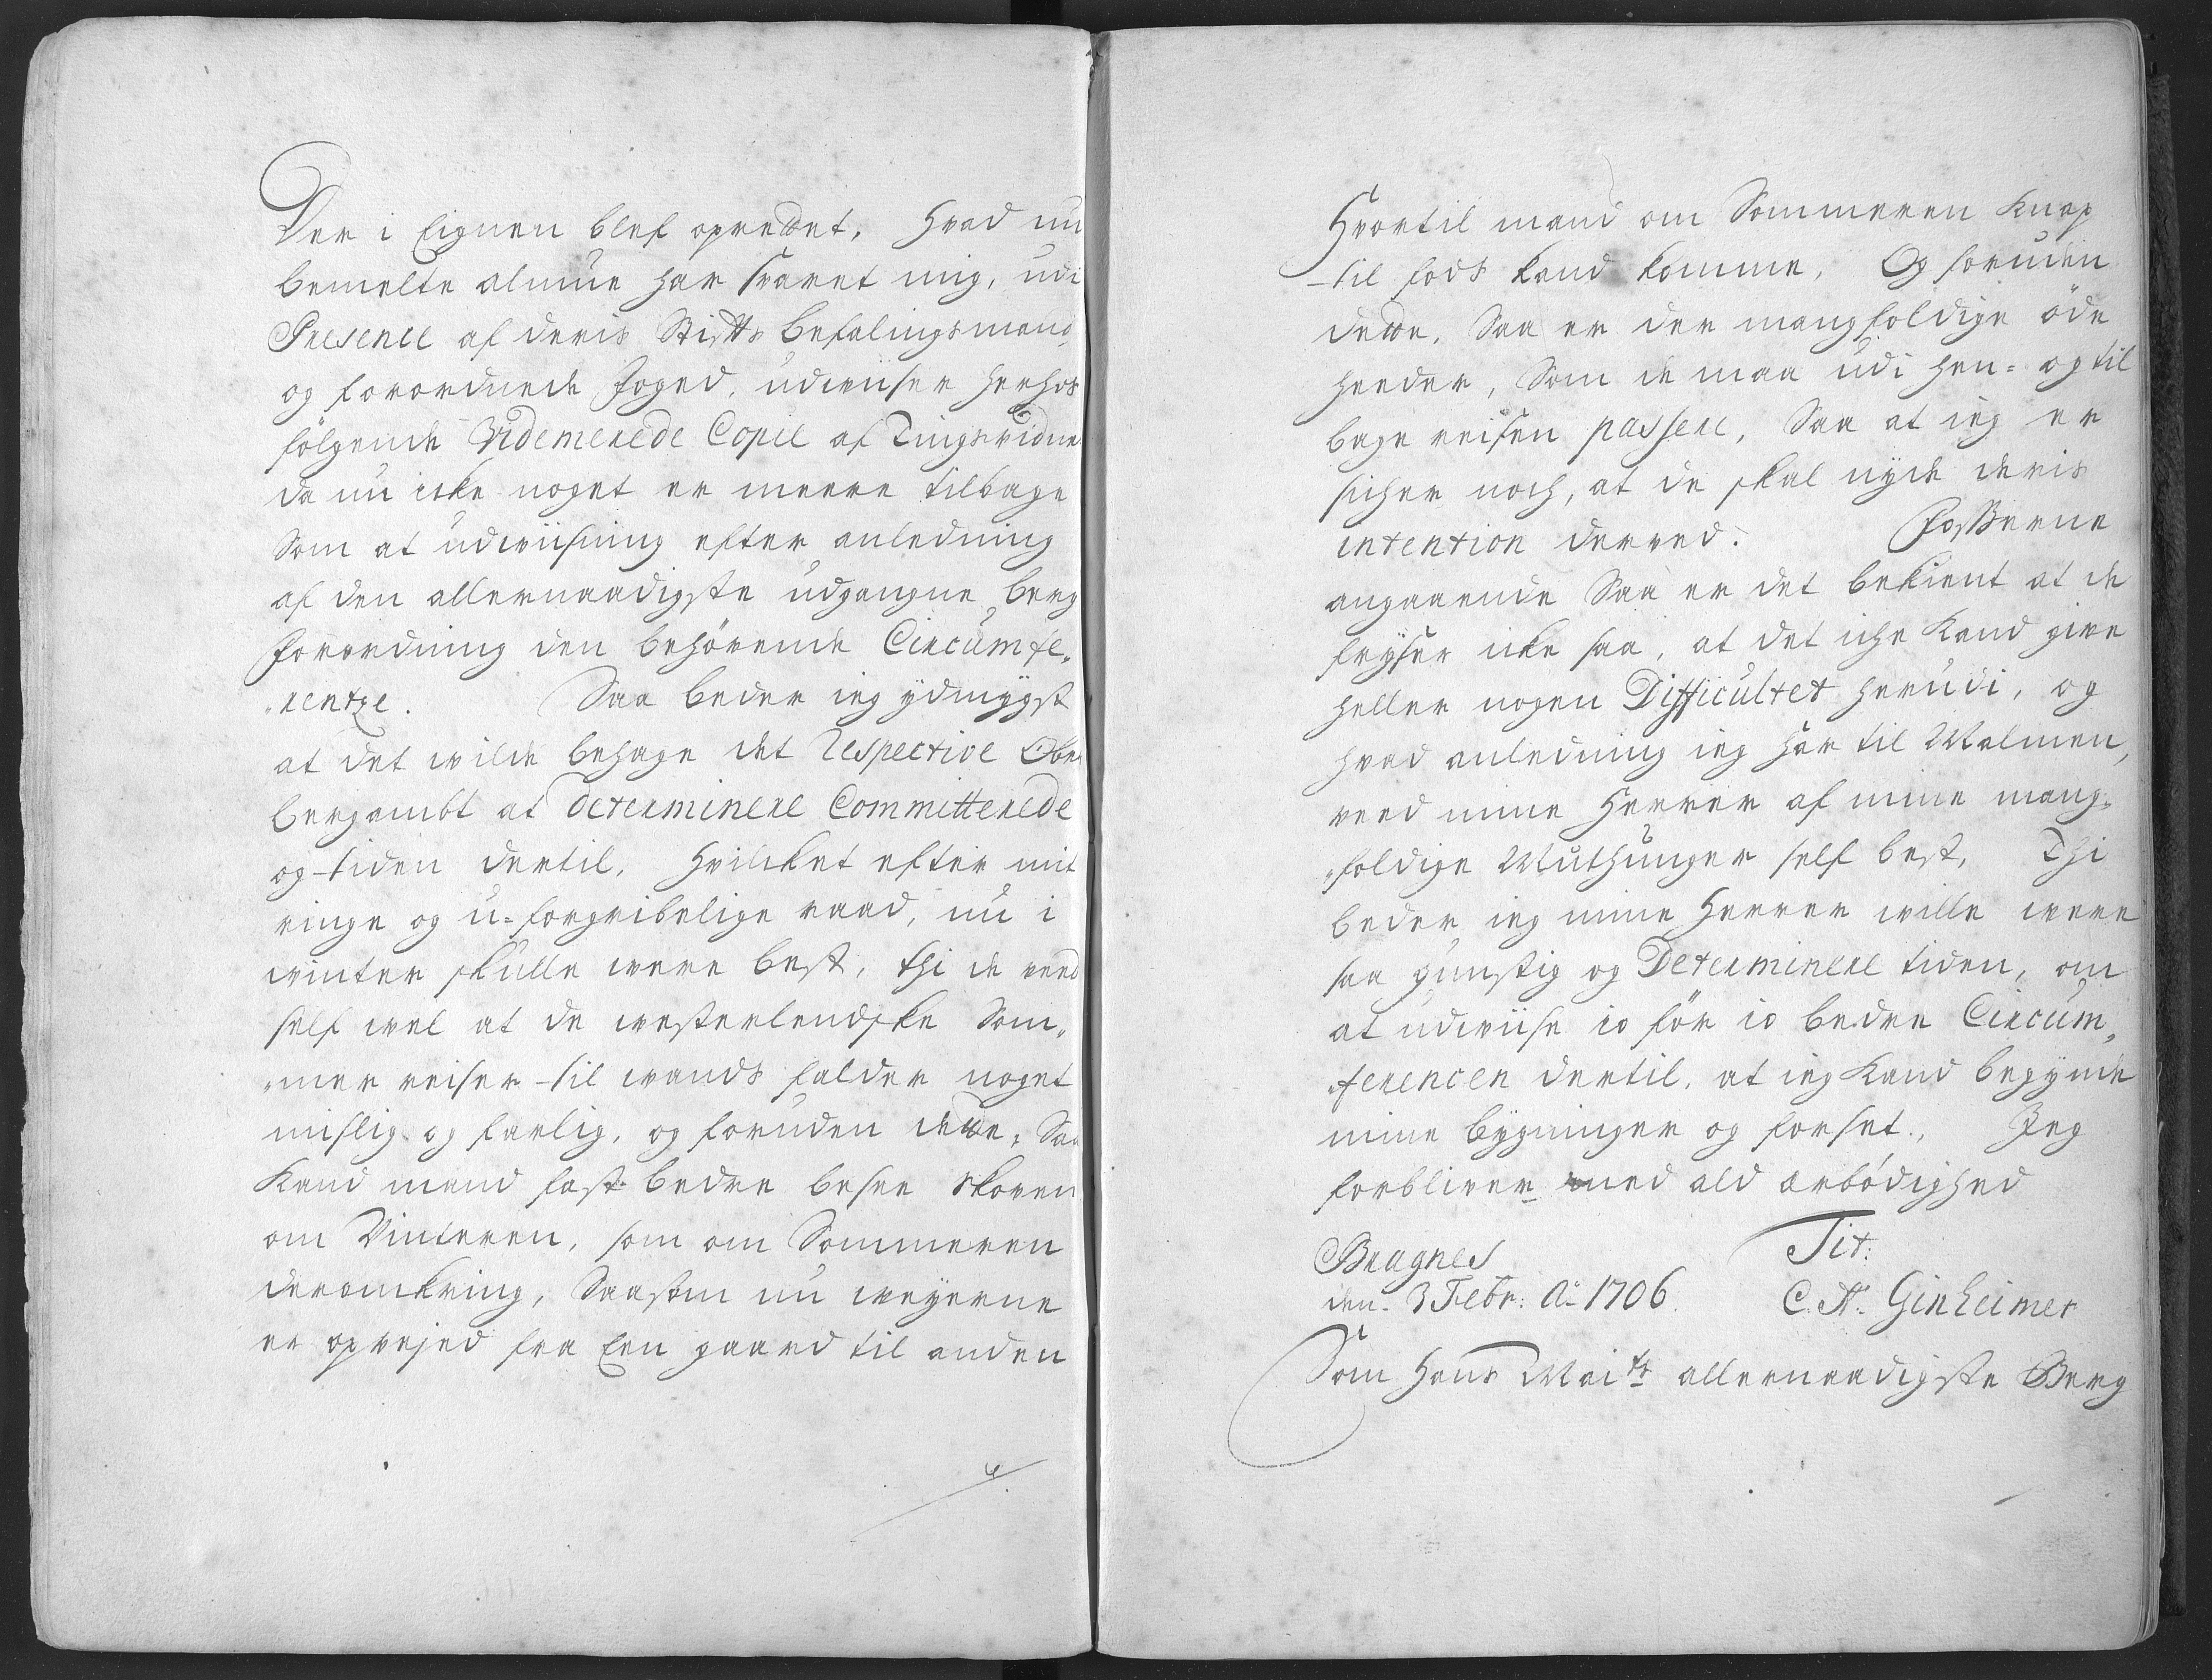 Der i Eignen blef oprettet. Hvad nu
bemelte almue har svaret mig, udi
Presence af deris Stifts befalingsmand,
og forordnede Foged, udwiiser herhos
følgende Videmerede Copie af Tingsvidne
da nu icke noget er meere tilbage
Som at udwiisning efter anledning
af den allernaadigste udgangne berg
forordning den behørende Circumfe„
„rentze. Saa beder ieg ydmygst
at det wilde behage det Respective Ober
bergambt at determinere Committerede
og tiden dertil. Hvilcket efter mit
ringe og u-forgribelige raad, nu i
winter skulle were best, thi de veed
self wel at de westerlendske Som„
„mer reiser til wands falder noget
mislig og farlig, og foruden dette, Saa
kand mand fast bedre besee Skoven
om Vinteren, som om Sommeren
deromkring, Saasom nu weyerne
er opvejed fra Een gaard til anden
Hvortil mand om Sommeren knap
til fods kand komme. Og foruden
dette, Saa er der mangfoldige öde
heeder, Som de maa udi hen- og til
bage reisen passere, Saa at ieg er
sicher noch, at de skal nyde deris
intention derved. Fosserne
angaaende Saa er det bekient at de
fryser icke saa, at det iche kand give
heller nogen Difficultet herudi, og
hvad anledning ieg har til Malmen,
veed mine Herrer af mine mang„
„foldige Muthunger self best, Thi
beder ieg mine Herrer wille were
saa gunstig og Determinere tiden, om
at udwiise io för io bedre Circum„
ferencen dertil, at ieg kand begynde
mine bygninger og forset., Jeg
forbliver med ald ærbödighed
Tit:
Bragnes
den 3 Febr: Ao 1706. C. A. Ginheimer
Som Hans Maits allernaadigste Berg